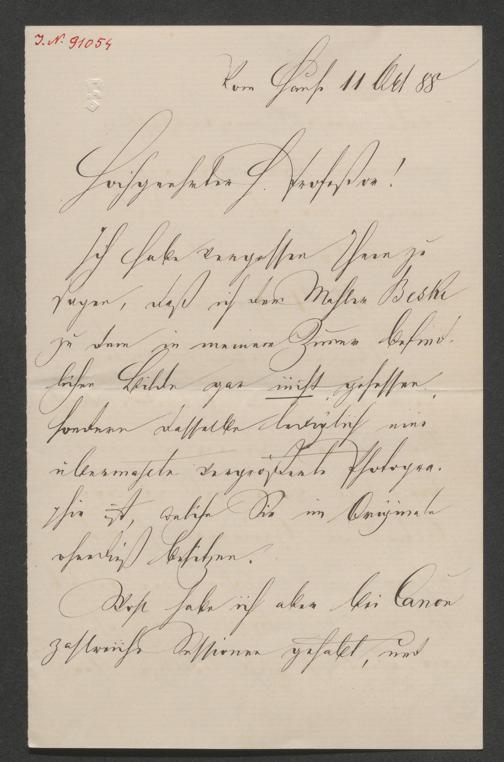 J. N. 91054
Vom Hause 11 Okt 88
Hochgeehrter H. Professor!
Ich habe vergessen Ihnen zu
sagen, daß ich dem Mahler Beski
zu dem in meinem Zimmer befind-
lichen Bilde gar nicht gesessen,
sondern dasselbe lediglich eine
übermahlte vergrößerte Photogra-
phie ist, welche Sie im Originale
ohnedieß besitzen.
Wohl habe ich aber bei Canon
zahlreiche Sessionen gehabt, und